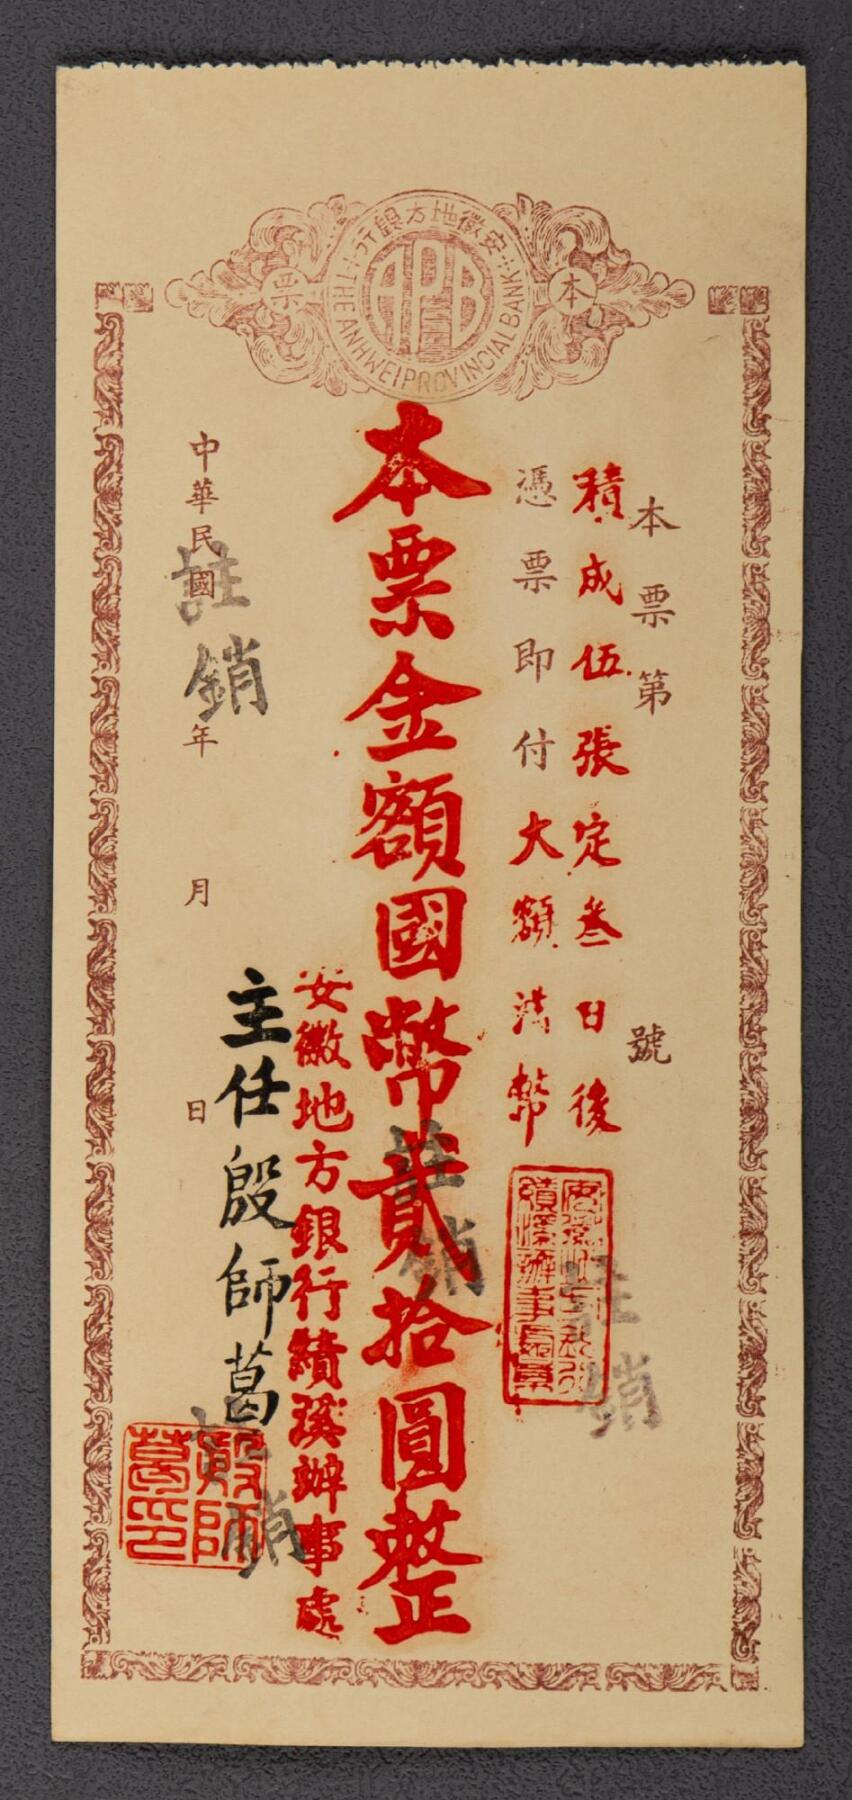 安徽地方銀行
APB
THE ANHWEI PROVINCIAL BANK
本票
本票第 號
積成伍張定叁日後
憑票即付大額法幣
本票金額國幣貳拾圓整
安徽地方銀行績溪辦事處
主任殷師葛
中華民國 年 月 日
殷師葛印
註銷
註銷
註銷
註銷